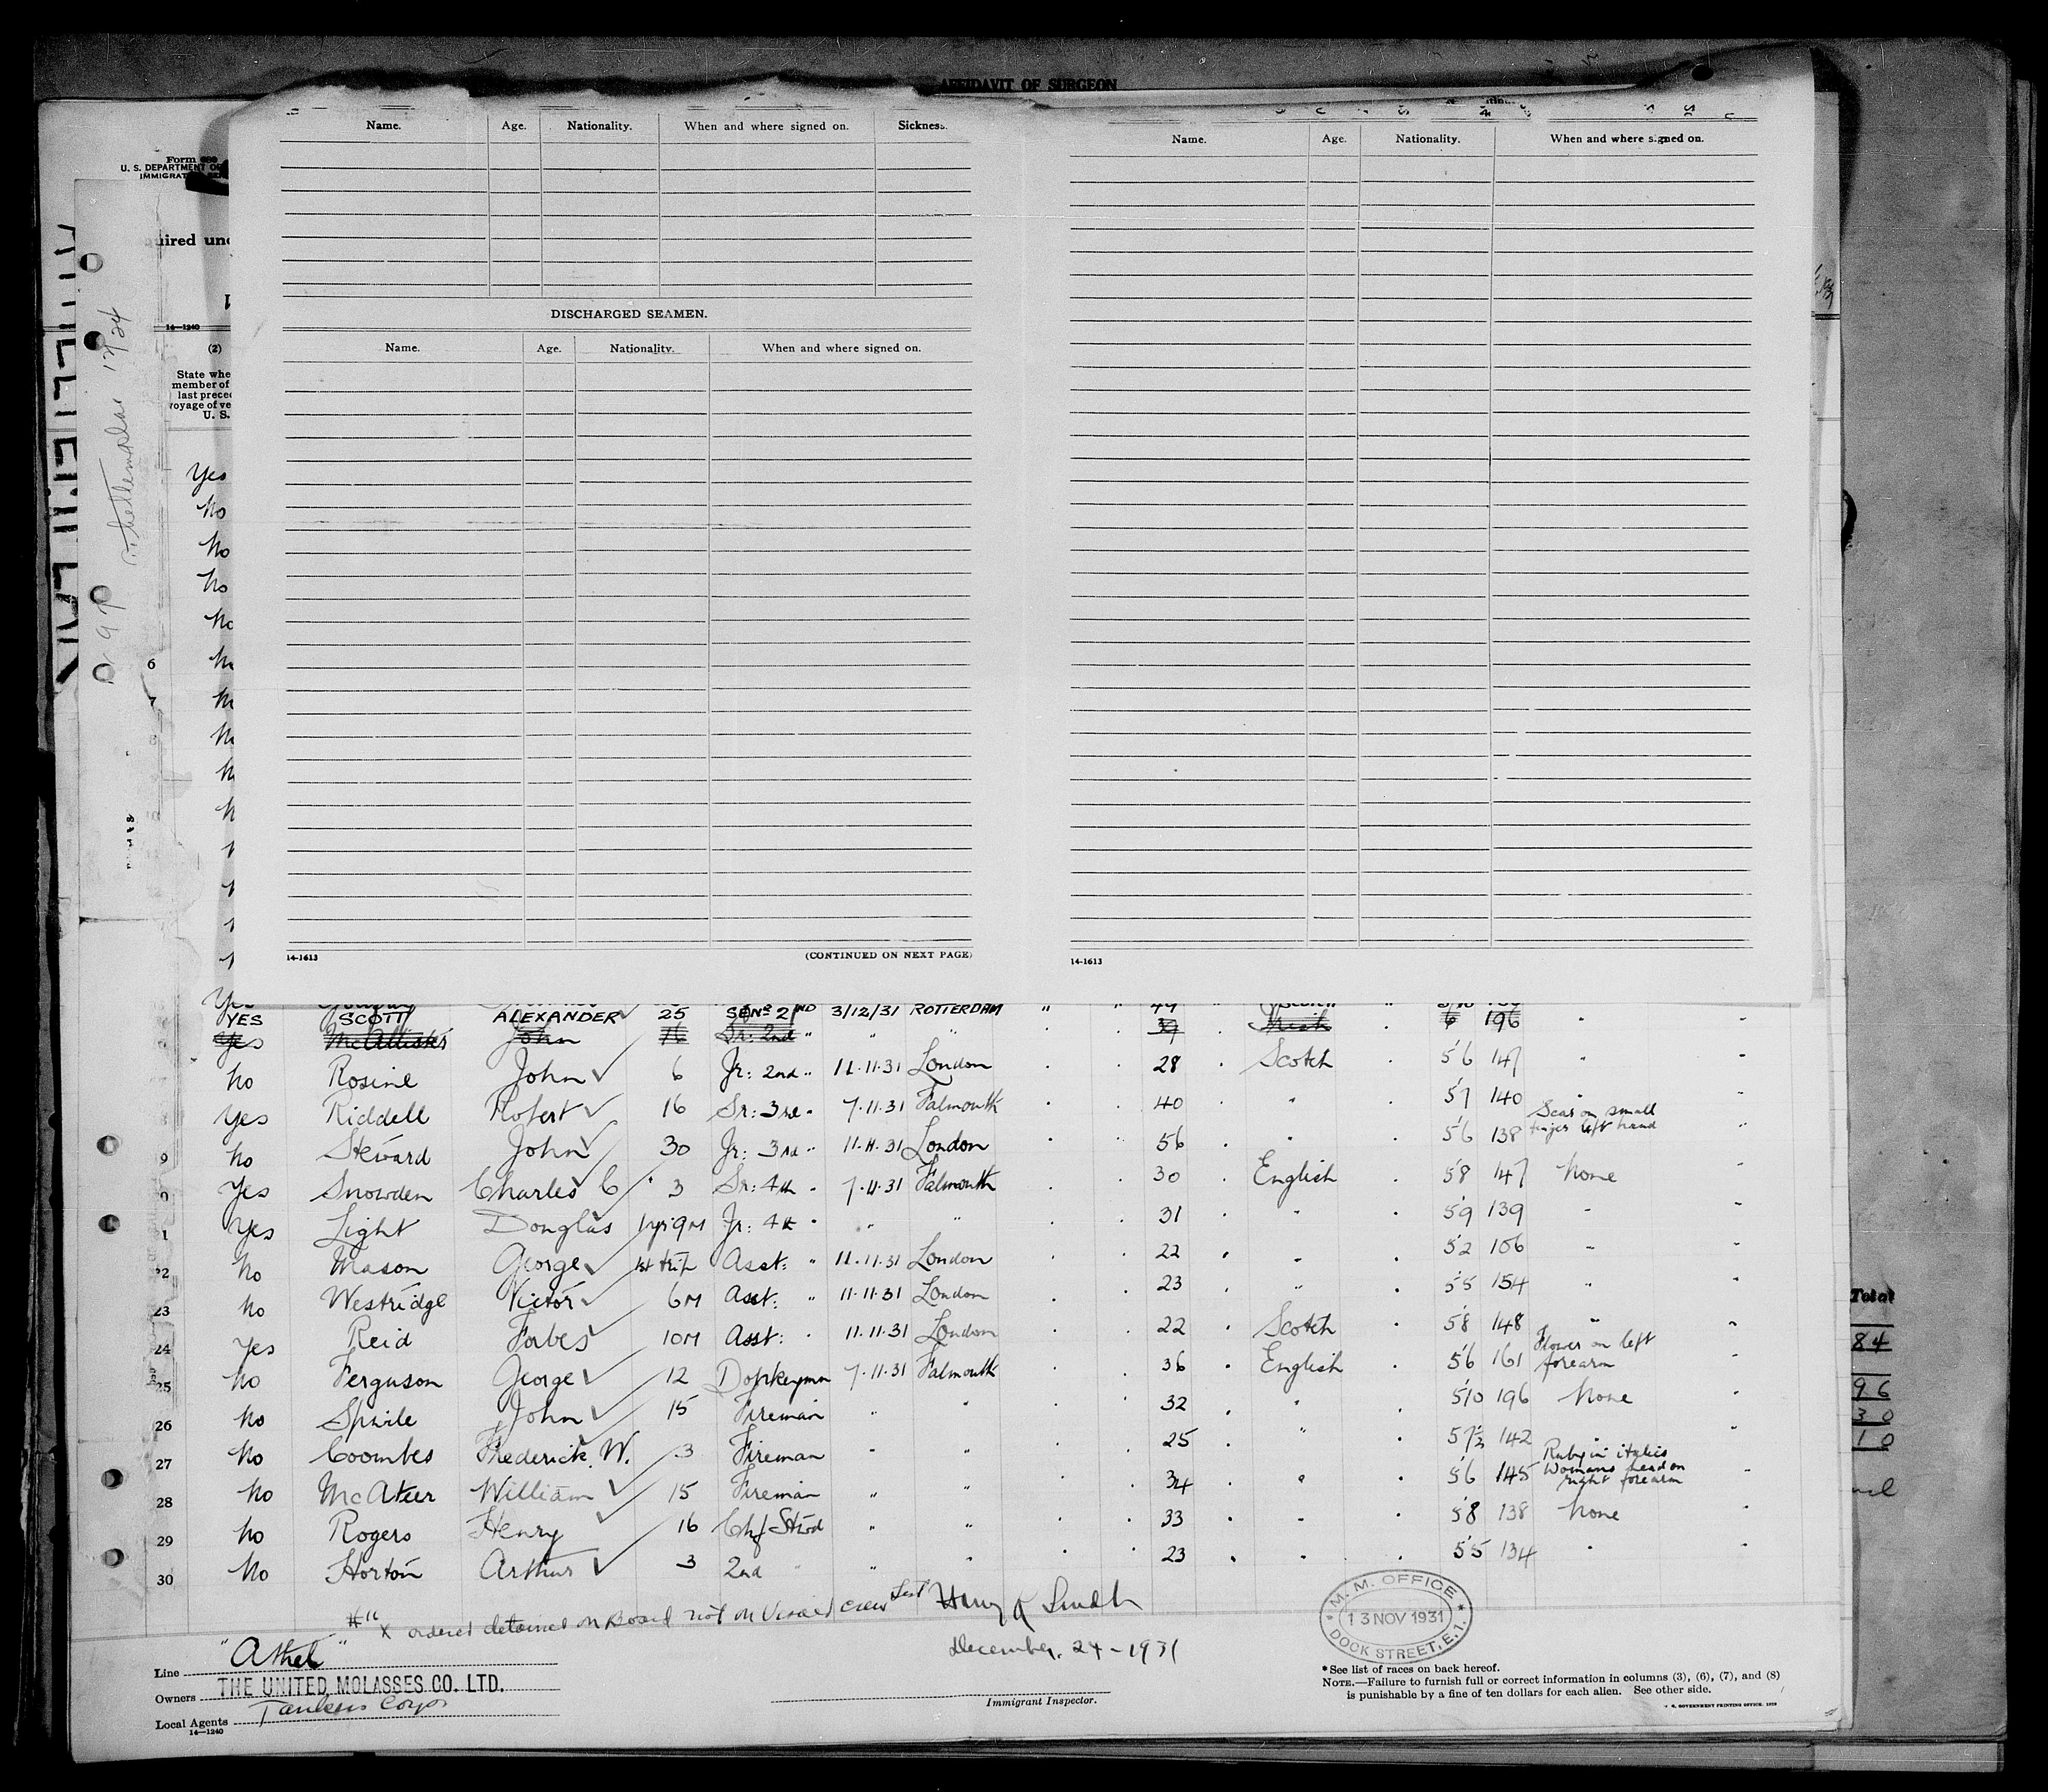 AFFIDAVIT OF SURGEON
Name. Age. Nationality. When and where signed on. Sickness.
Name. Age. Nationality. When and where signed on.
DISCHARGED SEAMEN.
Name. Age. Nationality. When and where signed on.
14-1613 (CONTINUED ON NEXT PAGE)
14-1613
Form 680
U. S. DEPARTMENT OF
IMMIGRAT
uired und
14-1240
(2)
State whe
member of
last preced
voyage of ve
U. S.
Yes
No
No
No
No
6
7
Yes
YES SCOTT ALEXANDER 25 SEN. 2ND 3/12/31 ROTTERDAM " " 49
Yes McAllister John 16 Sr: 2nd " " " 39 Irish 6 196 "
No Rosine John 6 Jr: 2nd " 11.11.31 London 28 Scotch 5'6 147 "
Yes Riddell Robert 16 Sr: 3rd " 7.11.31 Falmouth 40 " 5'7 140
No Steward John 30 Jr: 3rd " 11.11.31 London 56 " 5'6 138 Scar on small finger left hand "
Yes Snowden Charles C 3 Sr: 4th " 7.11.31 Falmouth 30 English 5'8 147 None "
Yes Light Douglas 1yr 9M Jr: 4th " " " 31 " 5'9 139 " "
22 No Mason George 1st trip Asst: " 11.11.31 London 22 " 5'2 106 " "
23 No Westridge Victor 6M Asst: " 11.11.31 London 23 " 5'5 154 " "
24 Yes Reid Forbes 10M Asst: " 11.11.31 London 22 Scotch 5'8 148 " "
25 No Ferguson George 12 Donkeyman 7.11.31 Falmouth 36 English 5'6 161 Flower on left forearm
26 No John 15 Fireman " " 32 " 5'10 196 None "
27 No Coombes Frederick W. 3 Fireman " " 25 " 5'7½ 142 " "
28 No McAteer William 15 Fireman " " 34 " 5'6 145 Ruby in italics Womans head on right forearm "
29 No Rogers Henry 16 Chf Stwd " " 33 " 5'8 138 None "
30 No Horton Arthur 3 2nd " " " 23 " 5'5 134 " "
#" X ordered detained on Board not on Visaed crew List Henry R Smith
December. 24-1931
M. M. OFFICE
13 NOV 1931
DOCK STREET, E.1.
Line "Athel"
Owners THE UNITED MOLASSES CO. LTD.
Local Agents Tankers Corpn
14-1240
Immigrant Inspector.
*See list of races on back hereof.
NOTE.—Failure to furnish full or correct information in columns (3), (6), (7), and (8)
is punishable by a fine of ten dollars for each alien. See other side.
U. S. GOVERNMENT PRINTING OFFICE: 1929
Total
84
96
30
10